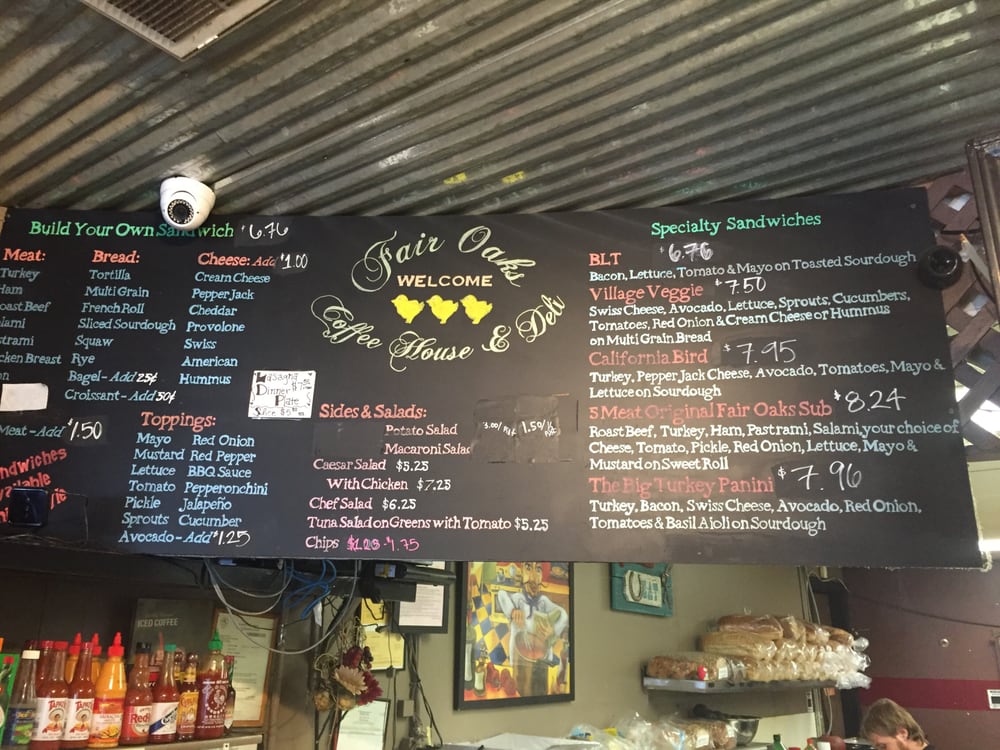 Build Your Own Sandwich $6.76
Meat:
Turkey
Ham
oast Beef
lami
strami
cken Breast
Meat - Add $1.50
Bread:
Tortilla
Multi Grain
French Roll
Sliced Sourdough
Squaw
Rye
Bagel - Add 25¢
Croissant - Add 50¢
Cheese: Add $1.00
Cream Cheese
Pepper Jack
Cheddar
Provolone
Swiss
American
Hummus
Toppings:
Mayo Red Onion
Mustard Red Pepper
Lettuce BBQ Sauce
Tomato Pepperonchini
Pickle Jalapeño
Sprouts Cucumber
Avocado - Add $1.25
Fair Oaks
WELCOME
Coffee House & Deli
Lasagna
Dinner
Plate
Sides & Salads:
Potato Salad
Macaroni Salad
Caesar Salad $5.25
With Chicken $7.25
Chef Salad $6.25
Tuna Salad on Greens with Tomato $5.25
Chips
Specialty Sandwiches
BLT $6.76
Bacon, Lettuce, Tomato & Mayo on Toasted Sourdough
Village Veggie $7.50
Swiss Cheese, Avocado, Lettuce, Sprouts, Cucumbers,
Tomatoes, Red Onion & Cream Cheese or Hummus
on Multi Grain Bread
California Bird $7.95
Turkey, Pepper Jack Cheese, Avocado, Tomatoes, Mayo &
Lettuce on Sourdough
5 Meat Original Fair Oaks Sub $8.24
Roast Beef, Turkey, Ham, Pastrami, Salami, your choice of
Cheese, Tomato, Pickle, Red Onion, Lettuce, Mayo &
Mustard on Sweet Roll
The Big Turkey Panini $7.96
Turkey, Bacon, Swiss Cheese, Avocado, Red Onion,
Tomatoes & Basil Aioli on Sourdough
ICED COFFEE